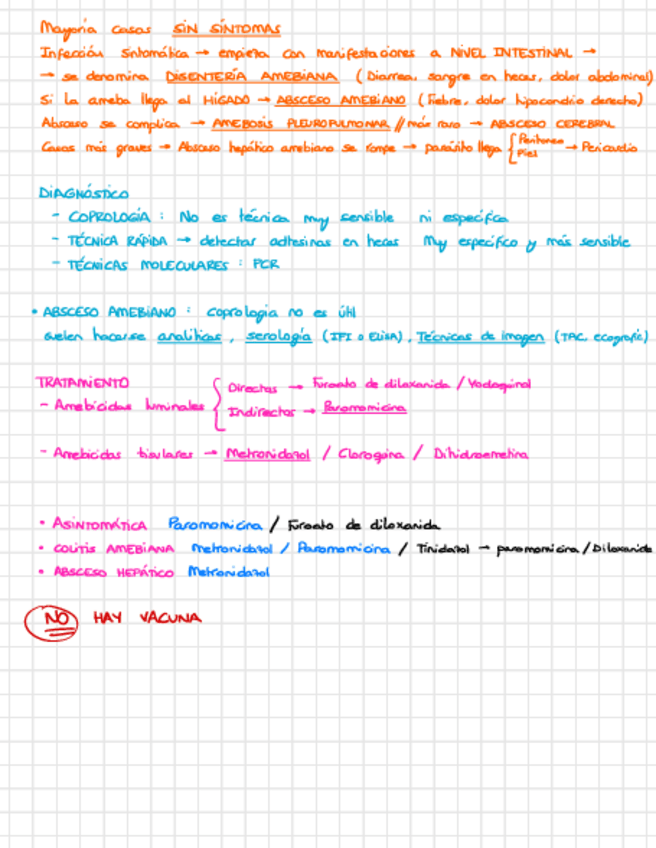 Mayoría casos SIN SÍNTOMAS
Infección sintomática → empieza con manifestaciones a NIVEL INTESTINAL →
→ se denomina DISENTERÍA AMEBIANA (Diarrea, sangre en heces, dolor abdominal)
Si la ameba llega al HÍGADO → ABSCESO AMEBIANO (Fiebre, dolor hipocondrio derecho)
Absceso se complica → AMEBOSIS PLEUROPULMONAR // más raro → ABSCESO CEREBRAL
Casos más graves → Absceso hepático amebiano se rompe → parásito llega { Peritoneo
Piel → Pericardio
DIAGNÓSTICO
- COPROLOGÍA : No es técnica muy sensible ni específica
- TÉCNICA RÁPIDA → detectar adhesinas en heces Muy específico y más sensible
- TÉCNICAS MOLECULARES : PCR
• ABSCESO AMEBIANO : coprología no es útil
suelen hacerse analíticas, serología (IFI o ELISA), Técnicas de imagen (TAC, ecografía)
TRATAMIENTO
- Amebicidas luminales { Directos → Furoato de diloxanida / Yodoquinol
Indirectos → Paromomicina
- Amebicidas tisulares → Metronidazol / Cloroquina / Dihidroemetina
• ASINTOMÁTICA Paromomicina / Furoato de diloxanida
• COLITIS AMEBIANA Metronidazol / Paromomicina / Tinidazol → paromomicina / Diloxanida
• ABSCESO HEPÁTICO Metronidazol
NO HAY VACUNA